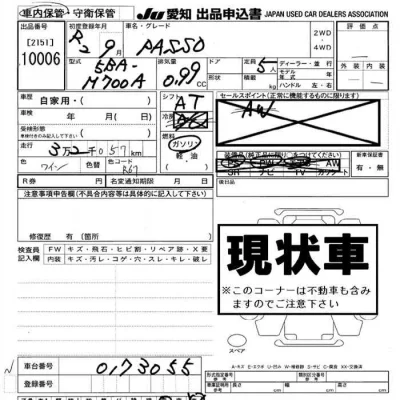 車内保管・守衛保管
JU 愛知 出品申込書 JAPAN USED CAR DEALERS ASSOCIATION
出品番号 初度登録年月 車名・グレード 評価点
[2151]
10006
R2 9月 PASSO
2WD
4WD
外装 内装
型式 排気量 ドア 定員 ディーラー・並行
5BA-
M700A
0.99
CC
形状 積載量
5人
モデル年式
ハンドル 左・右
車歴 自家用・( ) シフト AT
車検 年 月( ) 冷房
セールスポイント(正常に機能するものに限ります)
AW
受検形態
走行 3万2千057km
燃料 ガソリン
軽油
( )
新車保証書
有・無
PS PW AW
SR ナビ TV
色 ワイン 色替 色コード R67
後日品
R券 円 名変通知期限 月 日
注意事項申告欄(不具合内容等は具体的に記入して下さい)
修復歴 有(箇所 )
検査員記入欄 FW キズ・飛石・ヒビ割・リペア跡・X要
内装 キズ・汚レ・コゲ・穴・スレ・キレ・破レ
現状車
※このコーナーは不動車も含みますのでご注意下さい
スペア
車台番号 0173055
登録番号
長さ 幅 高さ